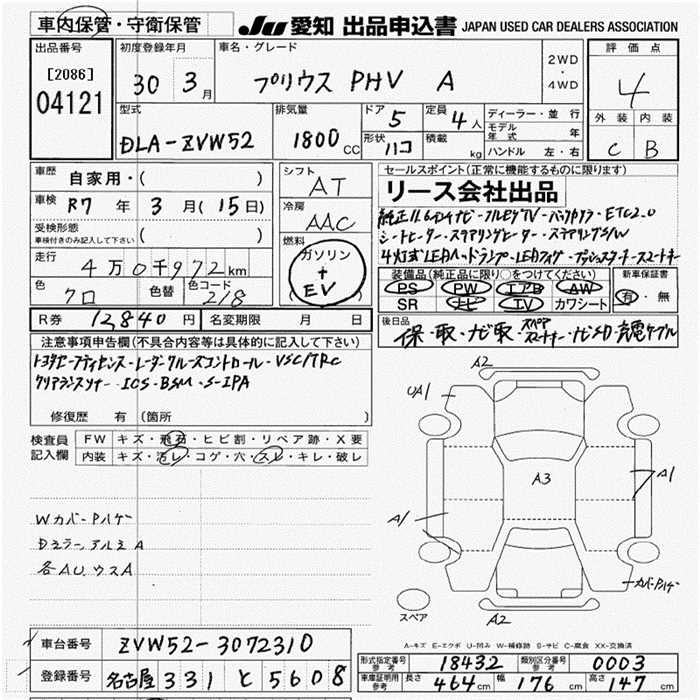 車内保管・守衛保管
JU 愛知 出品申込書 JAPAN USED CAR DEALERS ASSOCIATION
出品番号
[2086]
04121
初度登録年月
30 3月
車名・グレード
プリウス PHV A
2WD・4WD
評価点
4
外装 内装
C B
型式
DLA-ZVW52
排気量
1800CC
ドア
5
定員
4人
形状
ハコ
積載
kg
ディーラー・並行
モデル年式 年
ハンドル 左・右
車歴 自家用・( )
車検 R7年 3月(15日)
受検形態
車検付きのみ記入して下さい ( )
走行 4万0千972km
色 クロ 色替 色コード 218
シフト
AT
冷房
AAC
燃料
ガソリン
+
EV
セールスポイント(正常に機能するものに限ります)
リース会社出品
純正11.6インチナビ・フルセグTV・バックカメラ・ETC2.0
シートヒーター・ステアリングヒーター・ステアリングS/W
装備品(純正品に限り○をつけてください)
PS PW エアB AW
SR ナビ TV カワシート
新車保証書
有・無
R券 12840円 名変期限 月 日
後日品
保・取・ナビ取・スペアスマートキー・ナビSD・充電ケーブル
注意事項申告欄(不具合内容等は具体的に記入して下さい)
トヨタセーフティセンス・レーダークルーズコントロール・VSC/TRC
クリアランスソナー・ICS・BSM・S-IPA
修復歴 有 (箇所 )
検査員記入欄
FW キズ・飛石・ヒビ割・リペア跡・X要
内装 キズ・汚レ・コゲ・穴・スレ・キレ・破レ
Wカバーハゲ
Dミラー、アルミA
各AUウスA
A2
UA1
A3
A1
A1
カバーハゲ
スペア
A2
A-キズ E-エクボ U-凹み W-補修跡 S-サビ C-腐食 XX-交換済
車台番号 ZVW52-3072310
登録番号 名古屋 331 と 5608
形式指定番号参考 18432 類別区分番号参考 0003
車庫証明用参考 長さ 464cm 幅 176cm 高さ 147cm